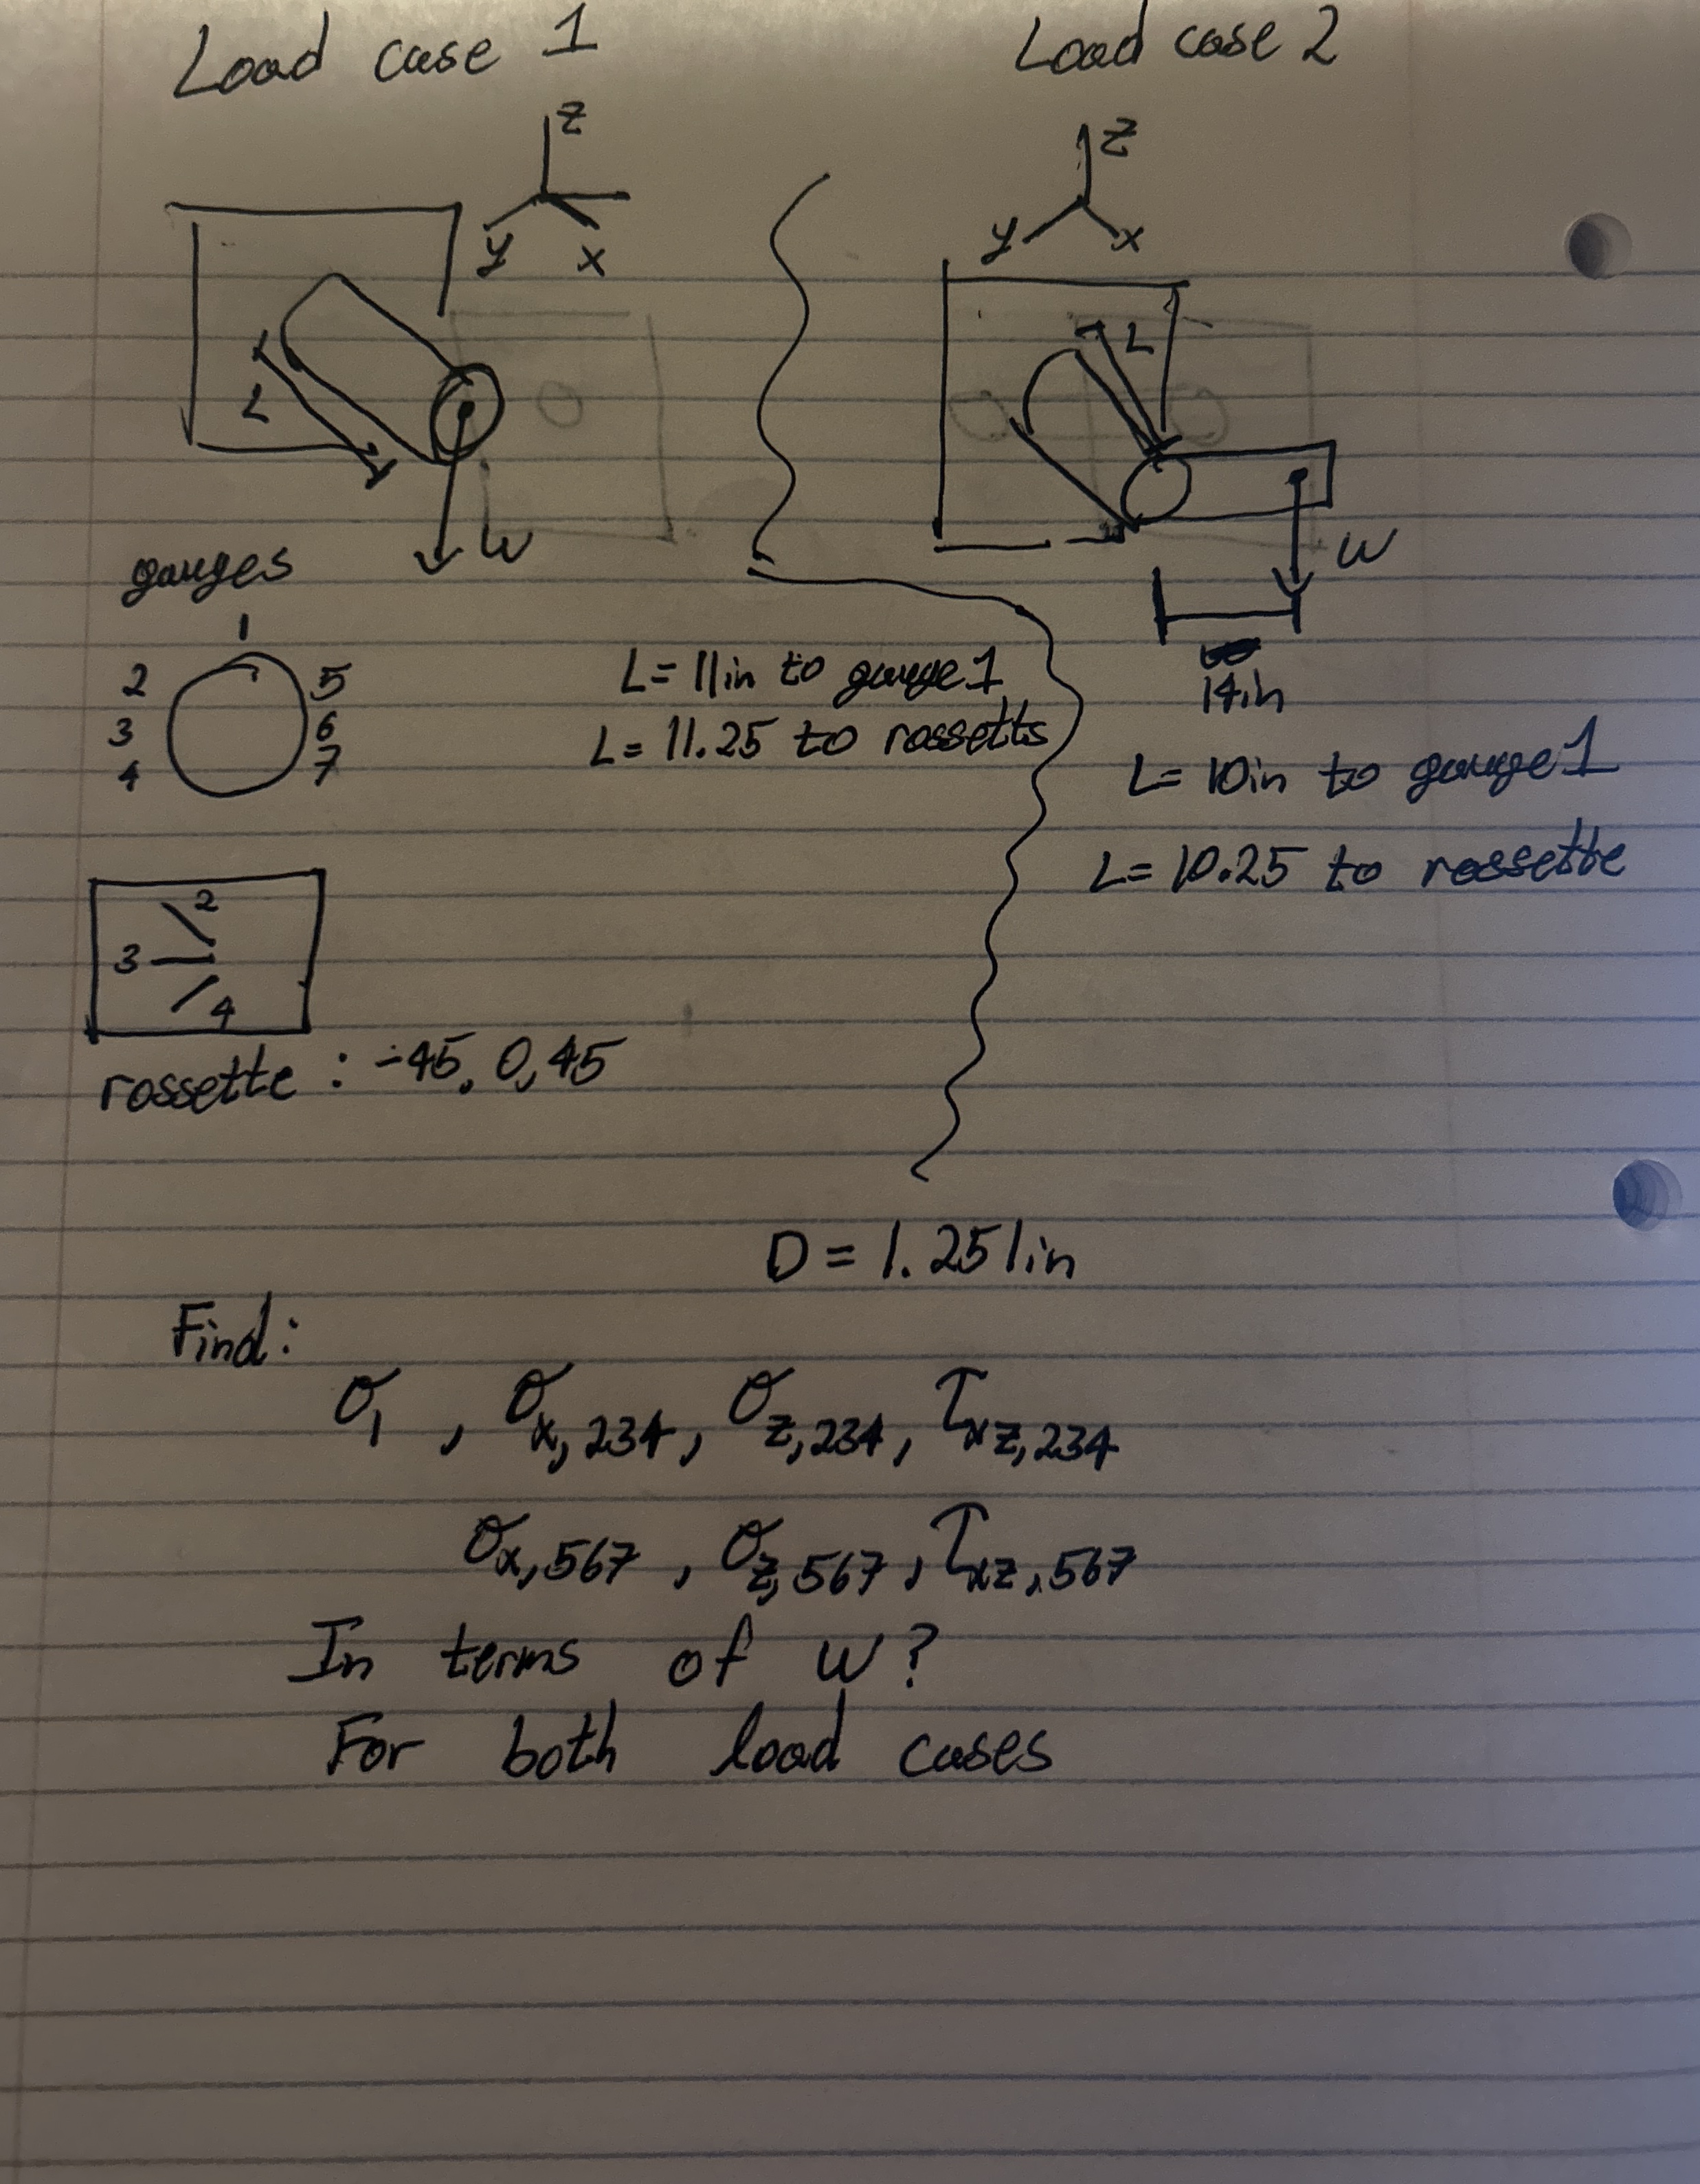 Load case 1
Load case 2
z
y
x
z
y
x
L
W
L
W
14in
gauges
1
2
5
3
6
4
7
L= 11in to gauge 1
L= 11.25 to rossetts
L= 10in to gauge 1
L= 10.25 to rossette
2
3
4
rossette : -45, 0, 45
D = 1.251in
Find:
σ1 , σx,234, σz,234, τxz,234
σx,567 , σz,567 , τxz,567
In terms of w?
For both load cases